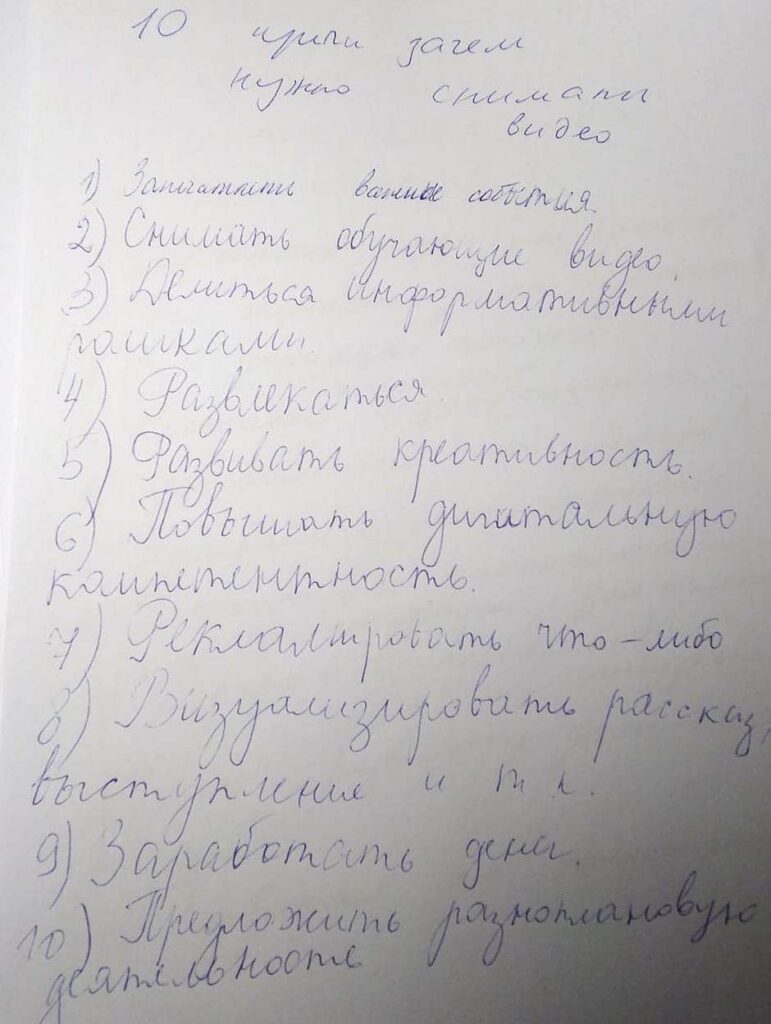 10 зачем
нужно снимать
видео
1) Запечатлеть важные события.
2) Снимать обучающие видео.
3) Делиться информативными
4) Развлекаться.
5) Развивать креативность.
6) Повышать дигитальную
компетентность.
7) Рекламировать что-либо
8) Визуализировать рассказ,
выступление и т.
9) Заработать
10) Предложить разноплановую
деятельность